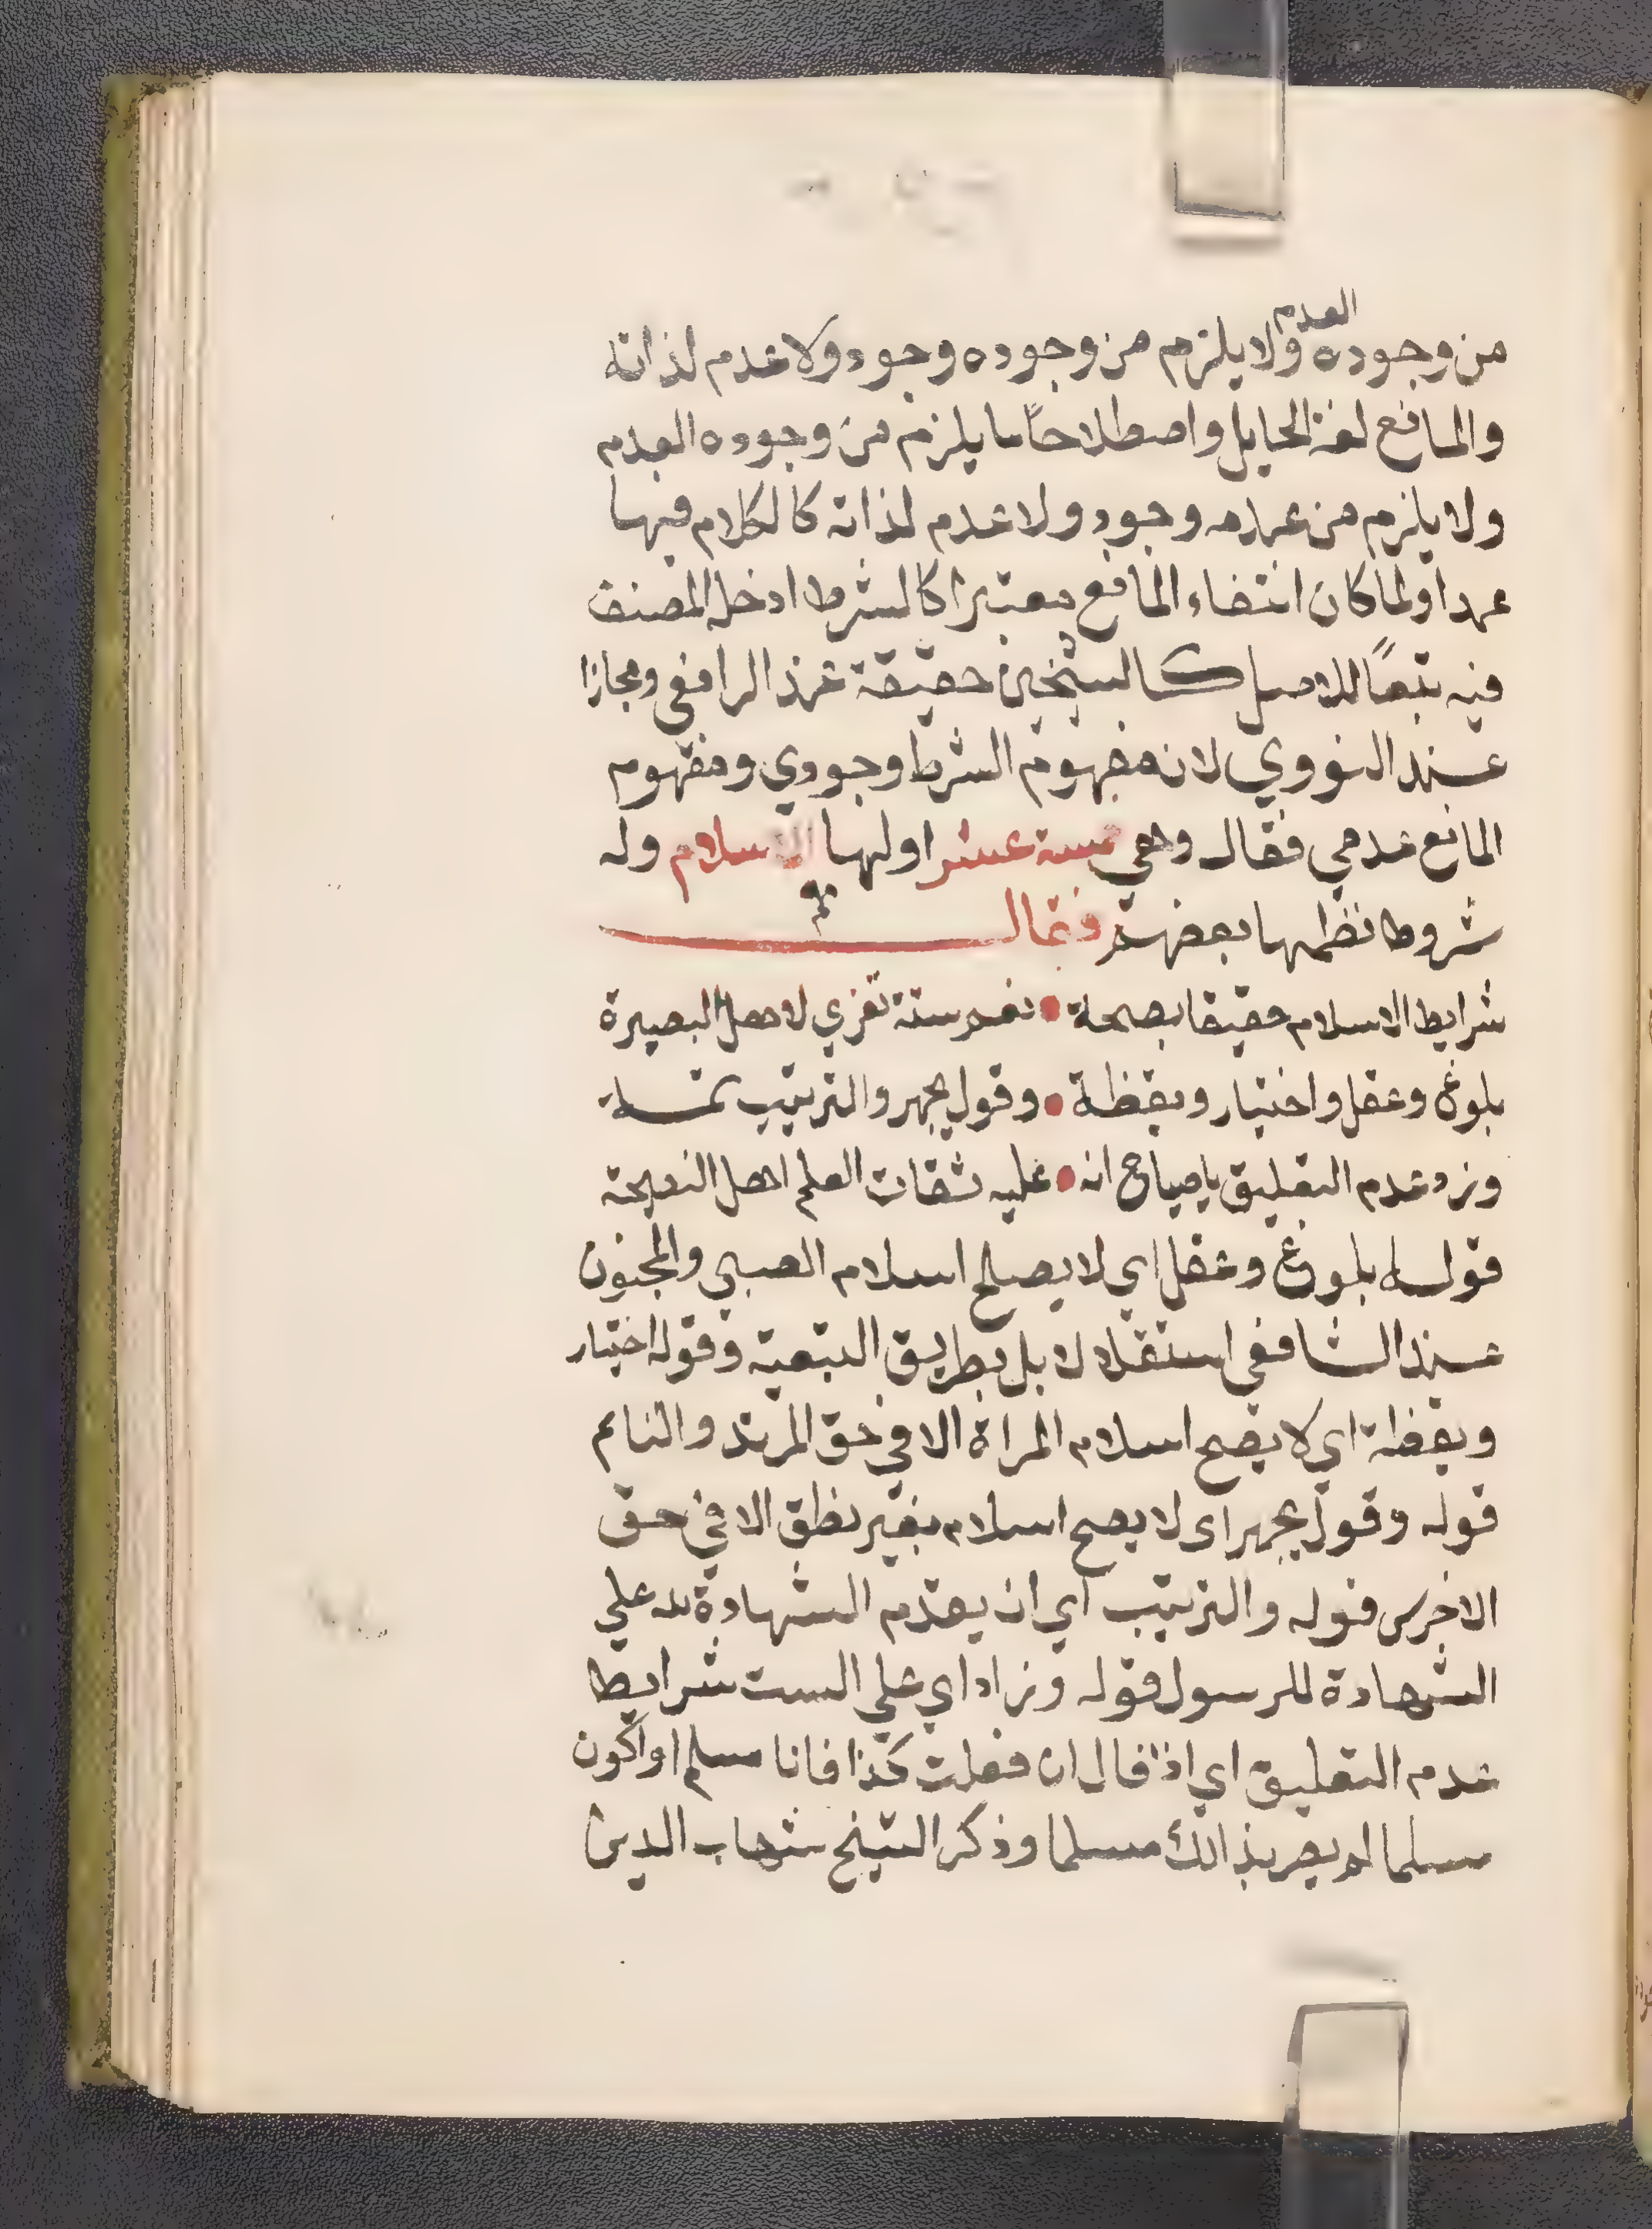 العدم
من وجوده ولا يلزم من وجوده وجود ولا عدم لذاته
والمانع لغة الحايل واصطلاحاً ما يلزم من وجوده العدم
ولا يلزم من عدمه وجود ولا عدم لذاته كالكلام فيها
عمدا ولما كان انتفاء المانع معتبرا كالشرط ادخله المصنف
فيه تبعاً للاصل كالشيخين حقيقة عند الرافعي ومجازا
عند النووي لان مفهوم الشرط وجودي ومفهوم
المانع عدمي فقال وهي خمسة عشر اولها الاسلام وله
شروط نظمها بعضهم فقال
شرايط الاسلام حقيقا بصحة نعم ستة تعزي لاهل البصيرة
بلوغ وعقل واختيار ويقظة وقول بجهر والترتيب تمت
وزد عدم التعليق ياصياح انه عليه ثقات العلم اهل النصيحة
قوله بلوغ وعقل اي لا يصلح اسلام الصبي والمجنون
عند الشافعي استقلالا بل بطريق التبعية وقوله اختيار
ويقظة اي لا يصح اسلام المراة الا في حق المرتد والنايم
قوله وقول بجهر اى لا يصح اسلام بغير نطق الا في حق
الاخرس قوله والترتيب اي ان يقدم الشهادة لله علي
الشهادة للرسول قوله وزاد اي علي الست شرايط
عدم التعليق اي اذا قال ان فعلت كذا فانا مسلم او اكون
مسلما لم يصر بذالك مسلما وذكر الشيخ شهاب الدين